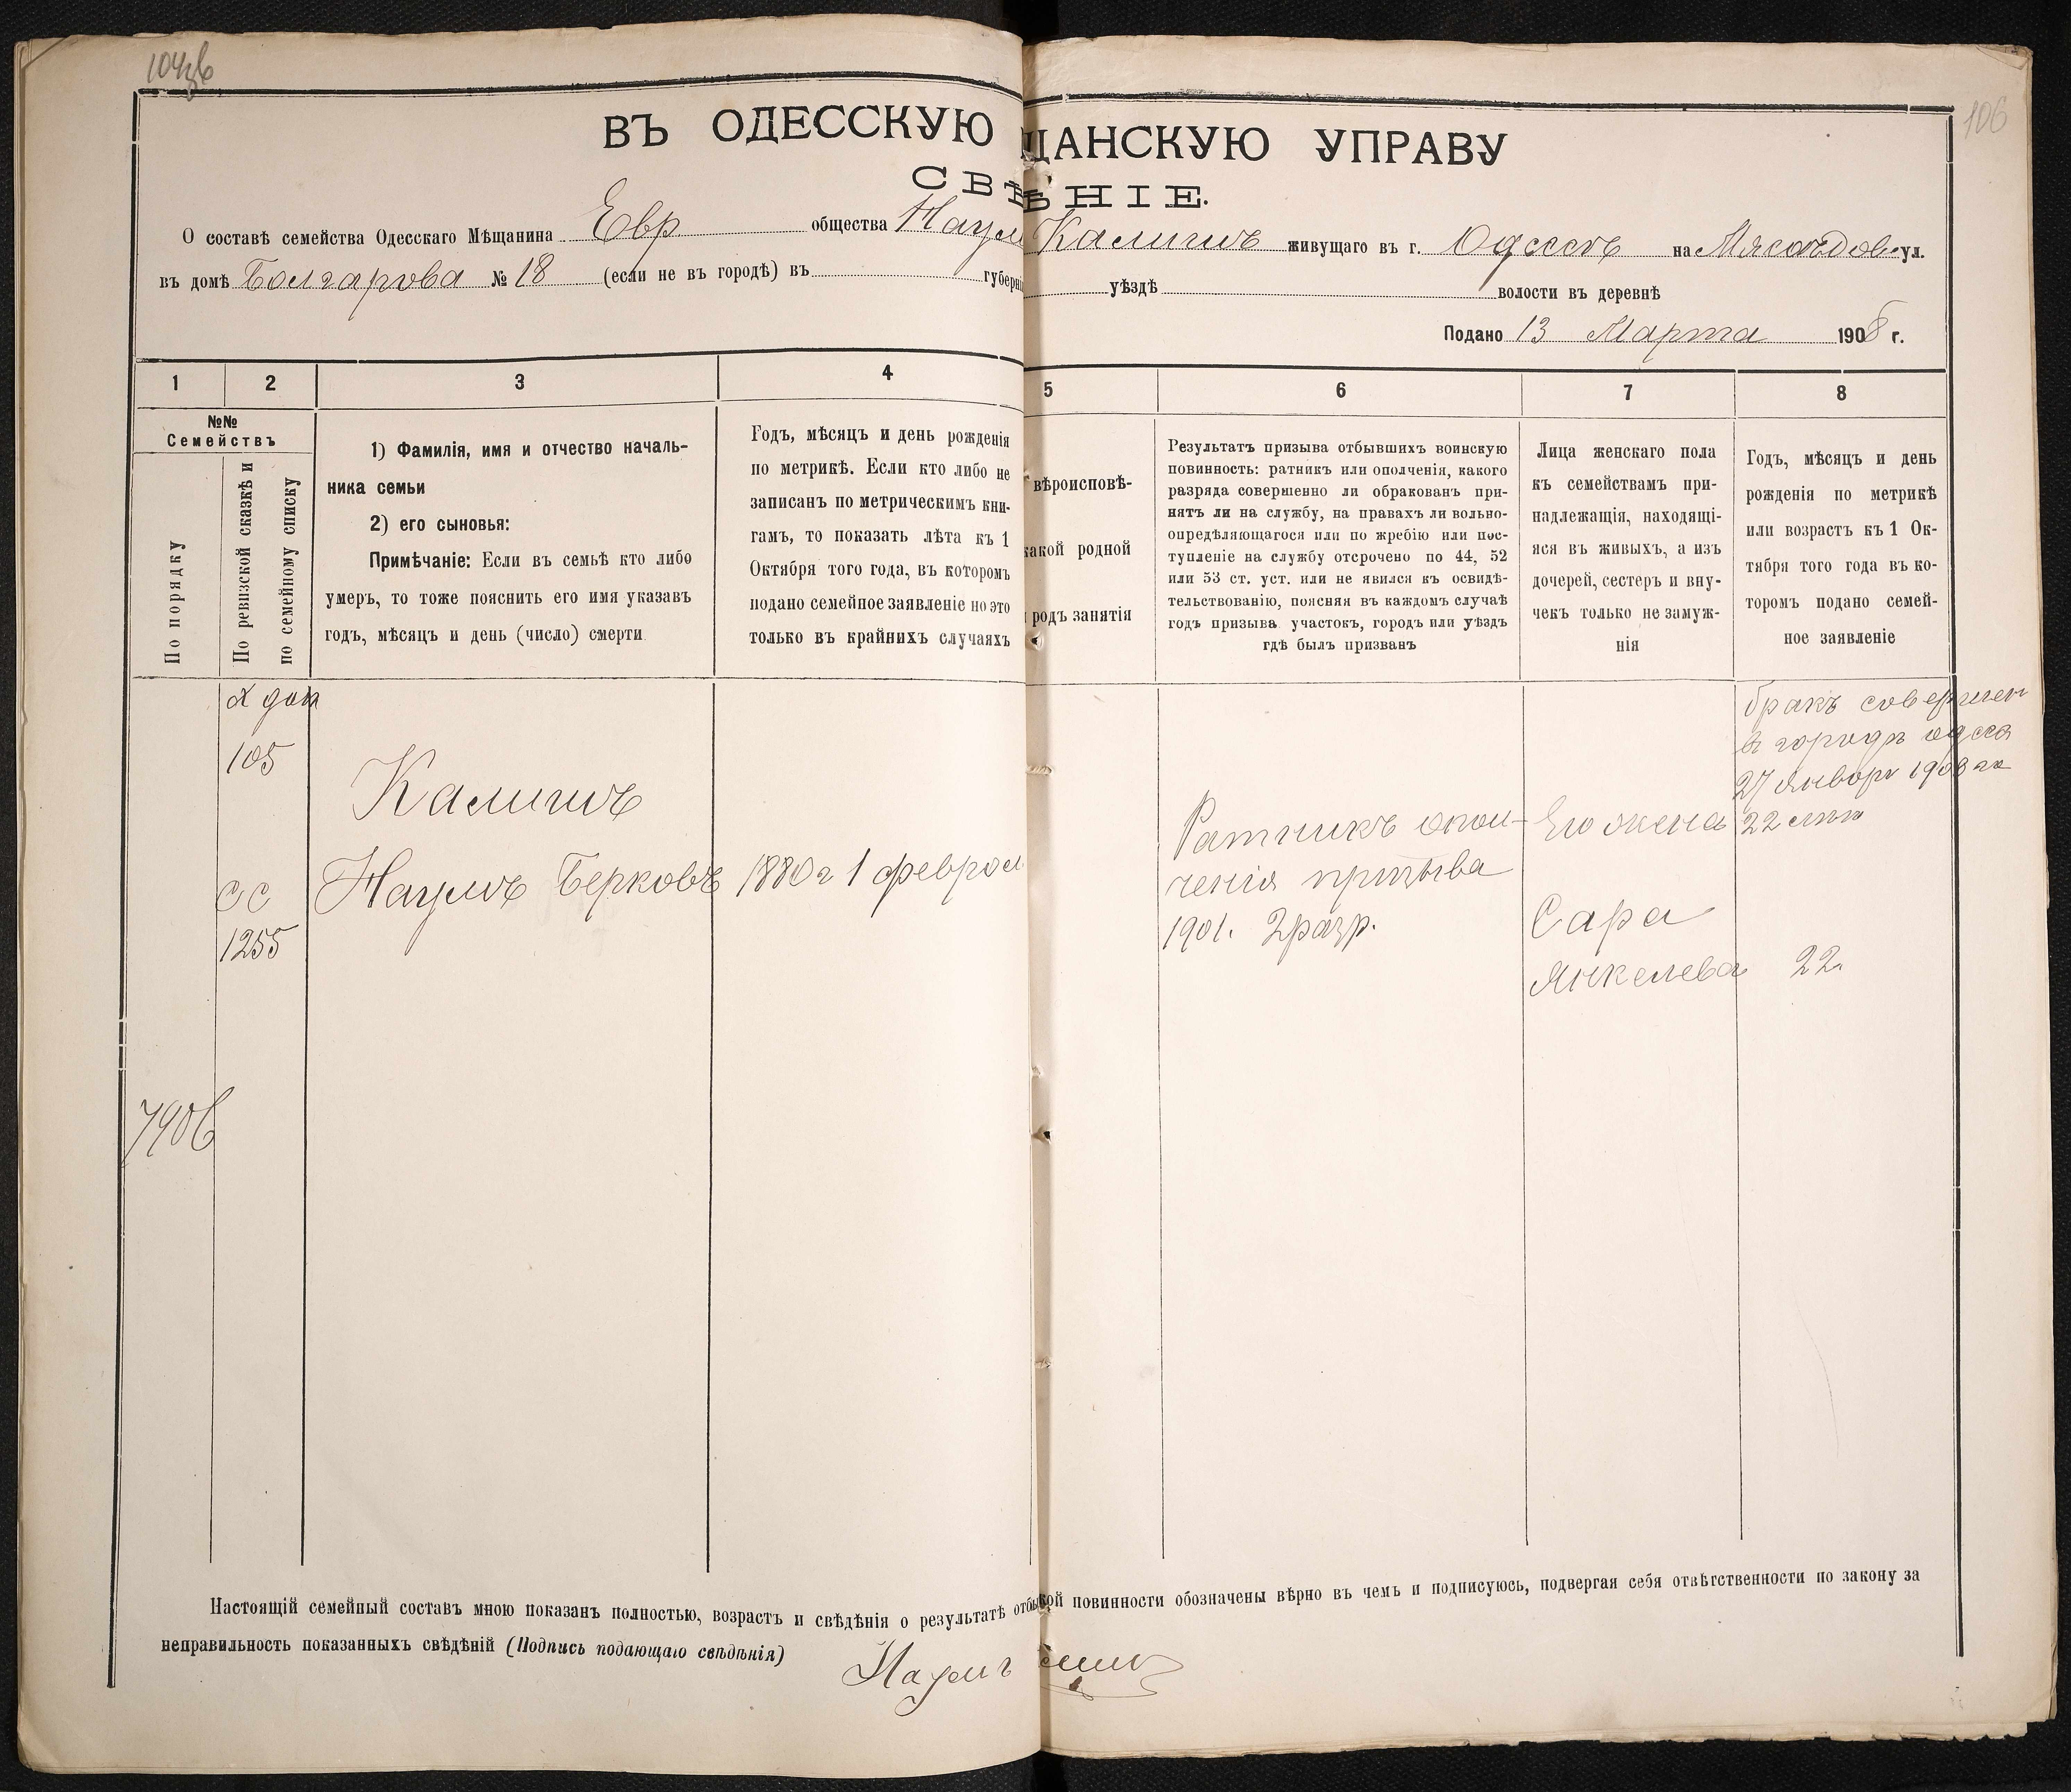 106
ВЪ ОДЕССКУЮ ЩАНСКУЮ УПРАВУ
СВѢ ѢНІЕ.
О составѣ семейства Одесскаго Мѣщанина Евр общества Наум Калигъ живущаго въ г. Одессѣ на Мясоѣдов. ул.
въ домѣ Болгарова № 18 (если не въ городѣ) въ губерні уѣздѣ волости въ деревнѣ
Подано 13 Марта 1908 г.
1 2 3 4 5 6 7 8
№№
Семействъ
По порядку
По ревизской сказкѣ и
по семейному списку
1) Фамилія, имя и отчество началь-
ника семьи
2) его сыновья:
Примѣчаніе: Если въ семьѣ кто либо
умеръ, то тоже пояснить его имя указавъ
годъ, мѣсяцъ и день (число) смерти
Годъ, мѣсяцъ и день рожденія
по метрикѣ. Если кто либо не
записанъ по метрическимъ кни-
гамъ, то показать лѣта къ 1
Октября того года, въ которомъ
подано семейное заявленіе но это
только въ крайнихъ случаяхъ
вѣроисповѣ-
какой родной
родъ занятія
Результатъ призыва отбывшихъ воинскую
повинность: ратникъ или ополченія, какого
разряда совершенно ли обракованъ при-
нятъ ли на службу, на правахъ ли вольно-
опредѣляющагося или по жребію или пос-
тупленіе на службу отсрочено по 44, 52
или 53 ст. уст. или не явился къ освидѣ-
тельствованію, поясняя въ каждомъ случаѣ
годъ призыва участокъ, городъ или уѣздъ
гдѣ былъ призванъ
Лица женскаго пола
къ семействамъ при-
надлежащія, находящі-
яся въ живыхъ, а изъ
дочерей, сестеръ и вну-
чекъ только не замуж-
нія
Годъ, мѣсяцъ и день
рожденія по метрикѣ
или возрастъ къ 1 Ок-
тября того года въ ко-
торомъ подано семей-
ное заявленіе
2 доп
105
Калигъ
СС
1255
Наумъ Берковъ
1880 г 1 феврал
Ратникъ опол-
ченія призыва
1901. 2 разр.
Его жена
Сара
Янкелева
бракъ совершен
в городѣ одсса
27 январ 1908 го
22 лѣт
22.
7906
Настоящій семейный составъ мною показанъ полностью, возрастъ и свѣдѣнія о результатѣ отбы кой повинности обозначены вѣрно въ чемъ и подписуюсь, подвергая себя отвѣтственности по закону за
неправильность показанныхъ свѣдѣній (Подпись подающаго свѣдѣнія)
Наумъ